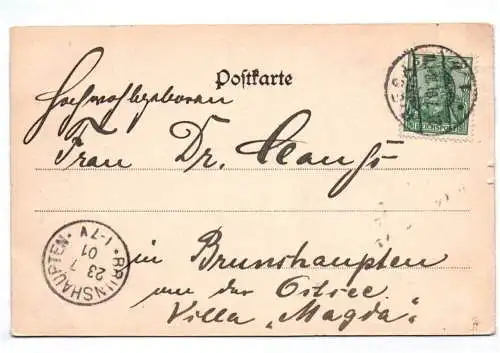 Postkarte
Hochwohlgeboren
Frau Dr. Clauss
in Brunshaupten
an der Ostsee
Villa „Magda“.
BRUNSHAUPTEN
23 7
01
1-7 V
REICHSPOST